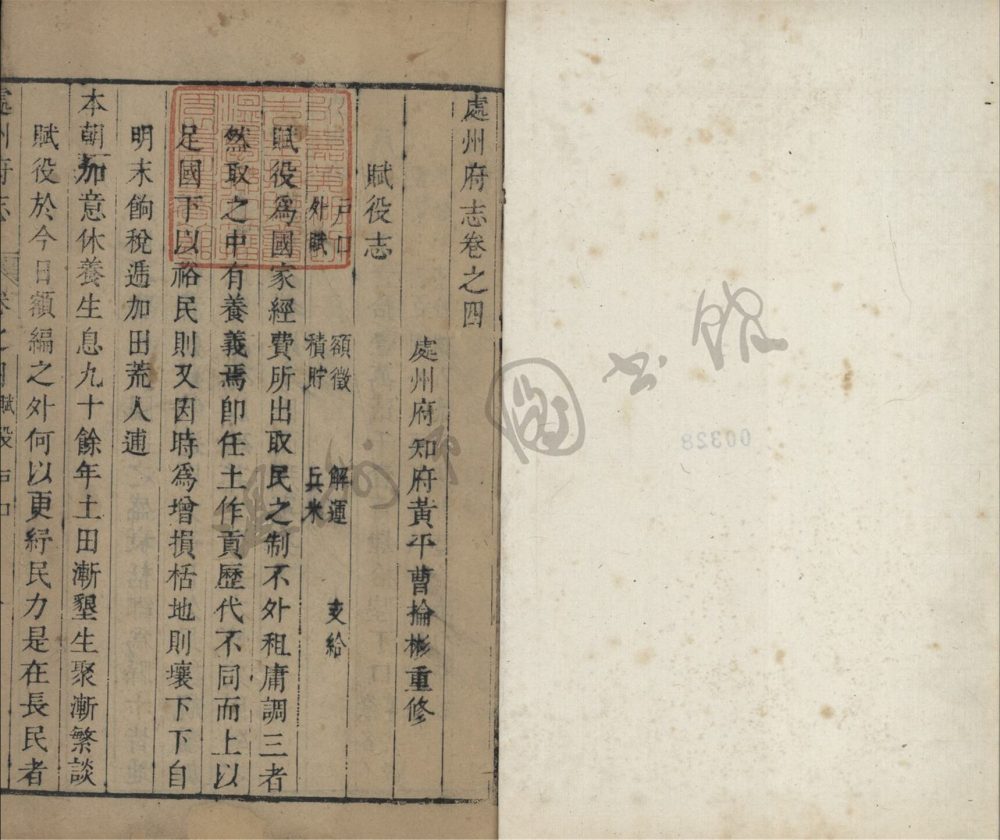 處州府志卷之四
處州府知府黃平曹掄彬重修
賦役志
戶口 額徵 解運 支給
外賦 積貯 兵米
賦役爲國家經費所出取民之制不外租庸調三者
然取之中有養義焉卽任土作貢歷代不同而上以
足國下以裕民則又因時爲增損栝地則壤下下自
明末餉稅遞加田荒人逋
本朝加意休養生息九十餘年土田漸墾生聚漸繁談
賦役於今日額編之外何以更紓民力是在長民者
處州府志 卷之四 賦役 戶口
圖書館
00328